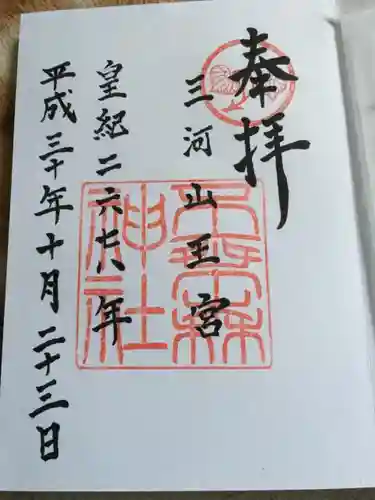 奉拝
三河山王宮
神社
皇紀二六七八年
平成三十年十月二十三日